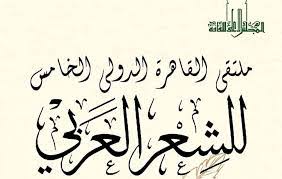 المجلس الأعلى للثقافة
ملتقى القاهرة الدولى الخامس
للشعر العربي